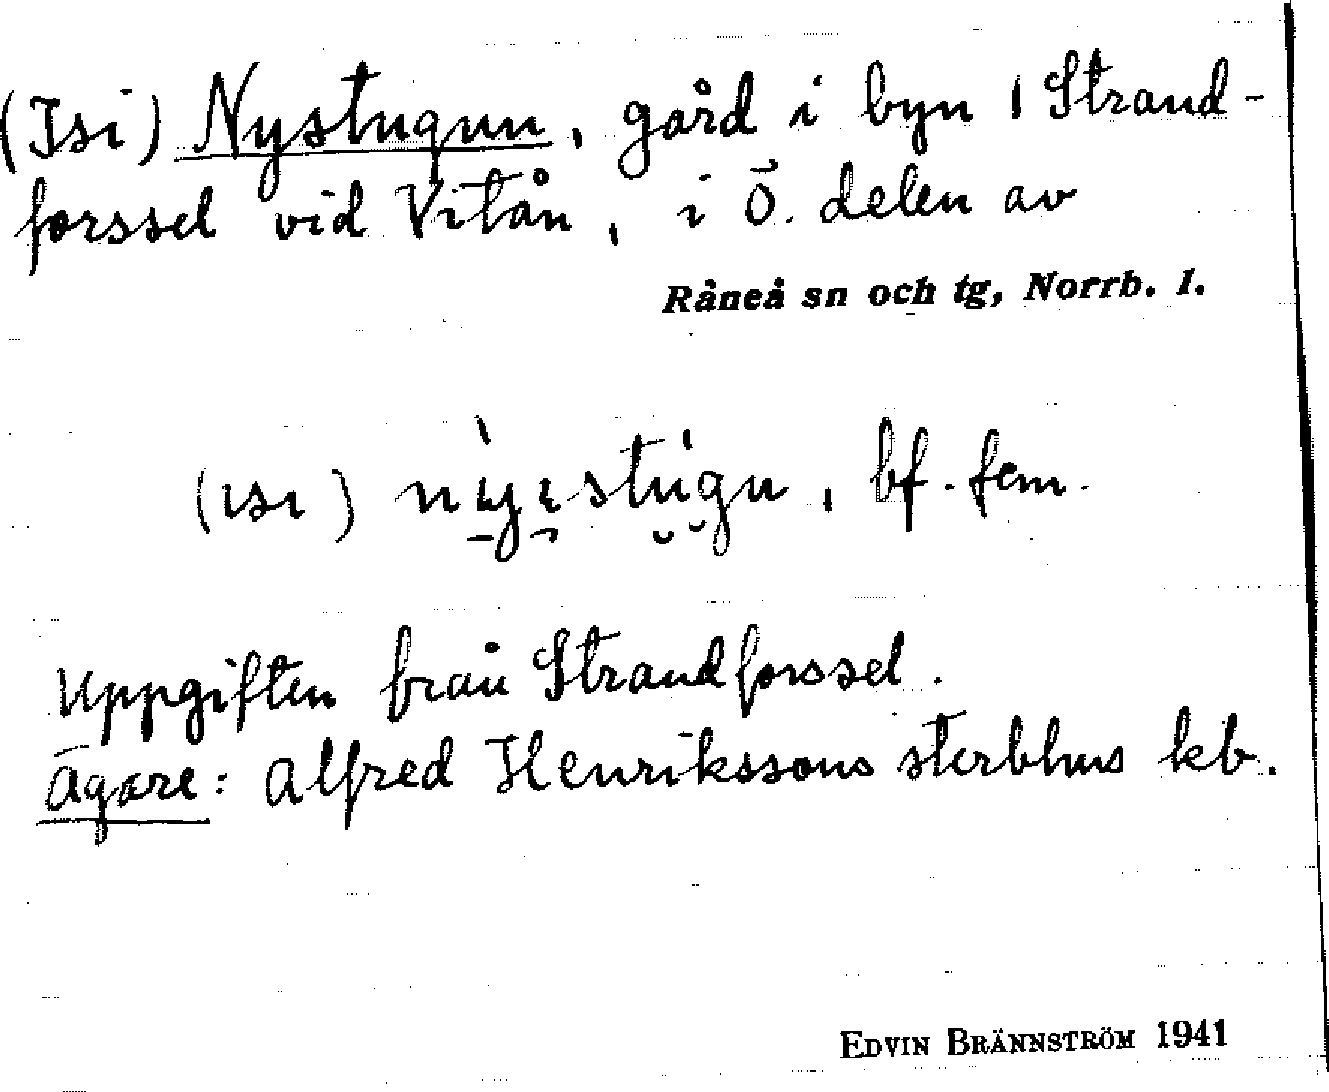 (Isi) Nystugun, gård i byn 1 Strand-
forssel vid Vitån, i Ö. delen av
Råneå sn och tg, Norrb. l.
(ısı) , bf. fem.
Uppgiften från Strandforssel.
Ägare: Alfred Henrikssons sterbhus kb.
EDVIN BRÄNNSTRÖM 1941